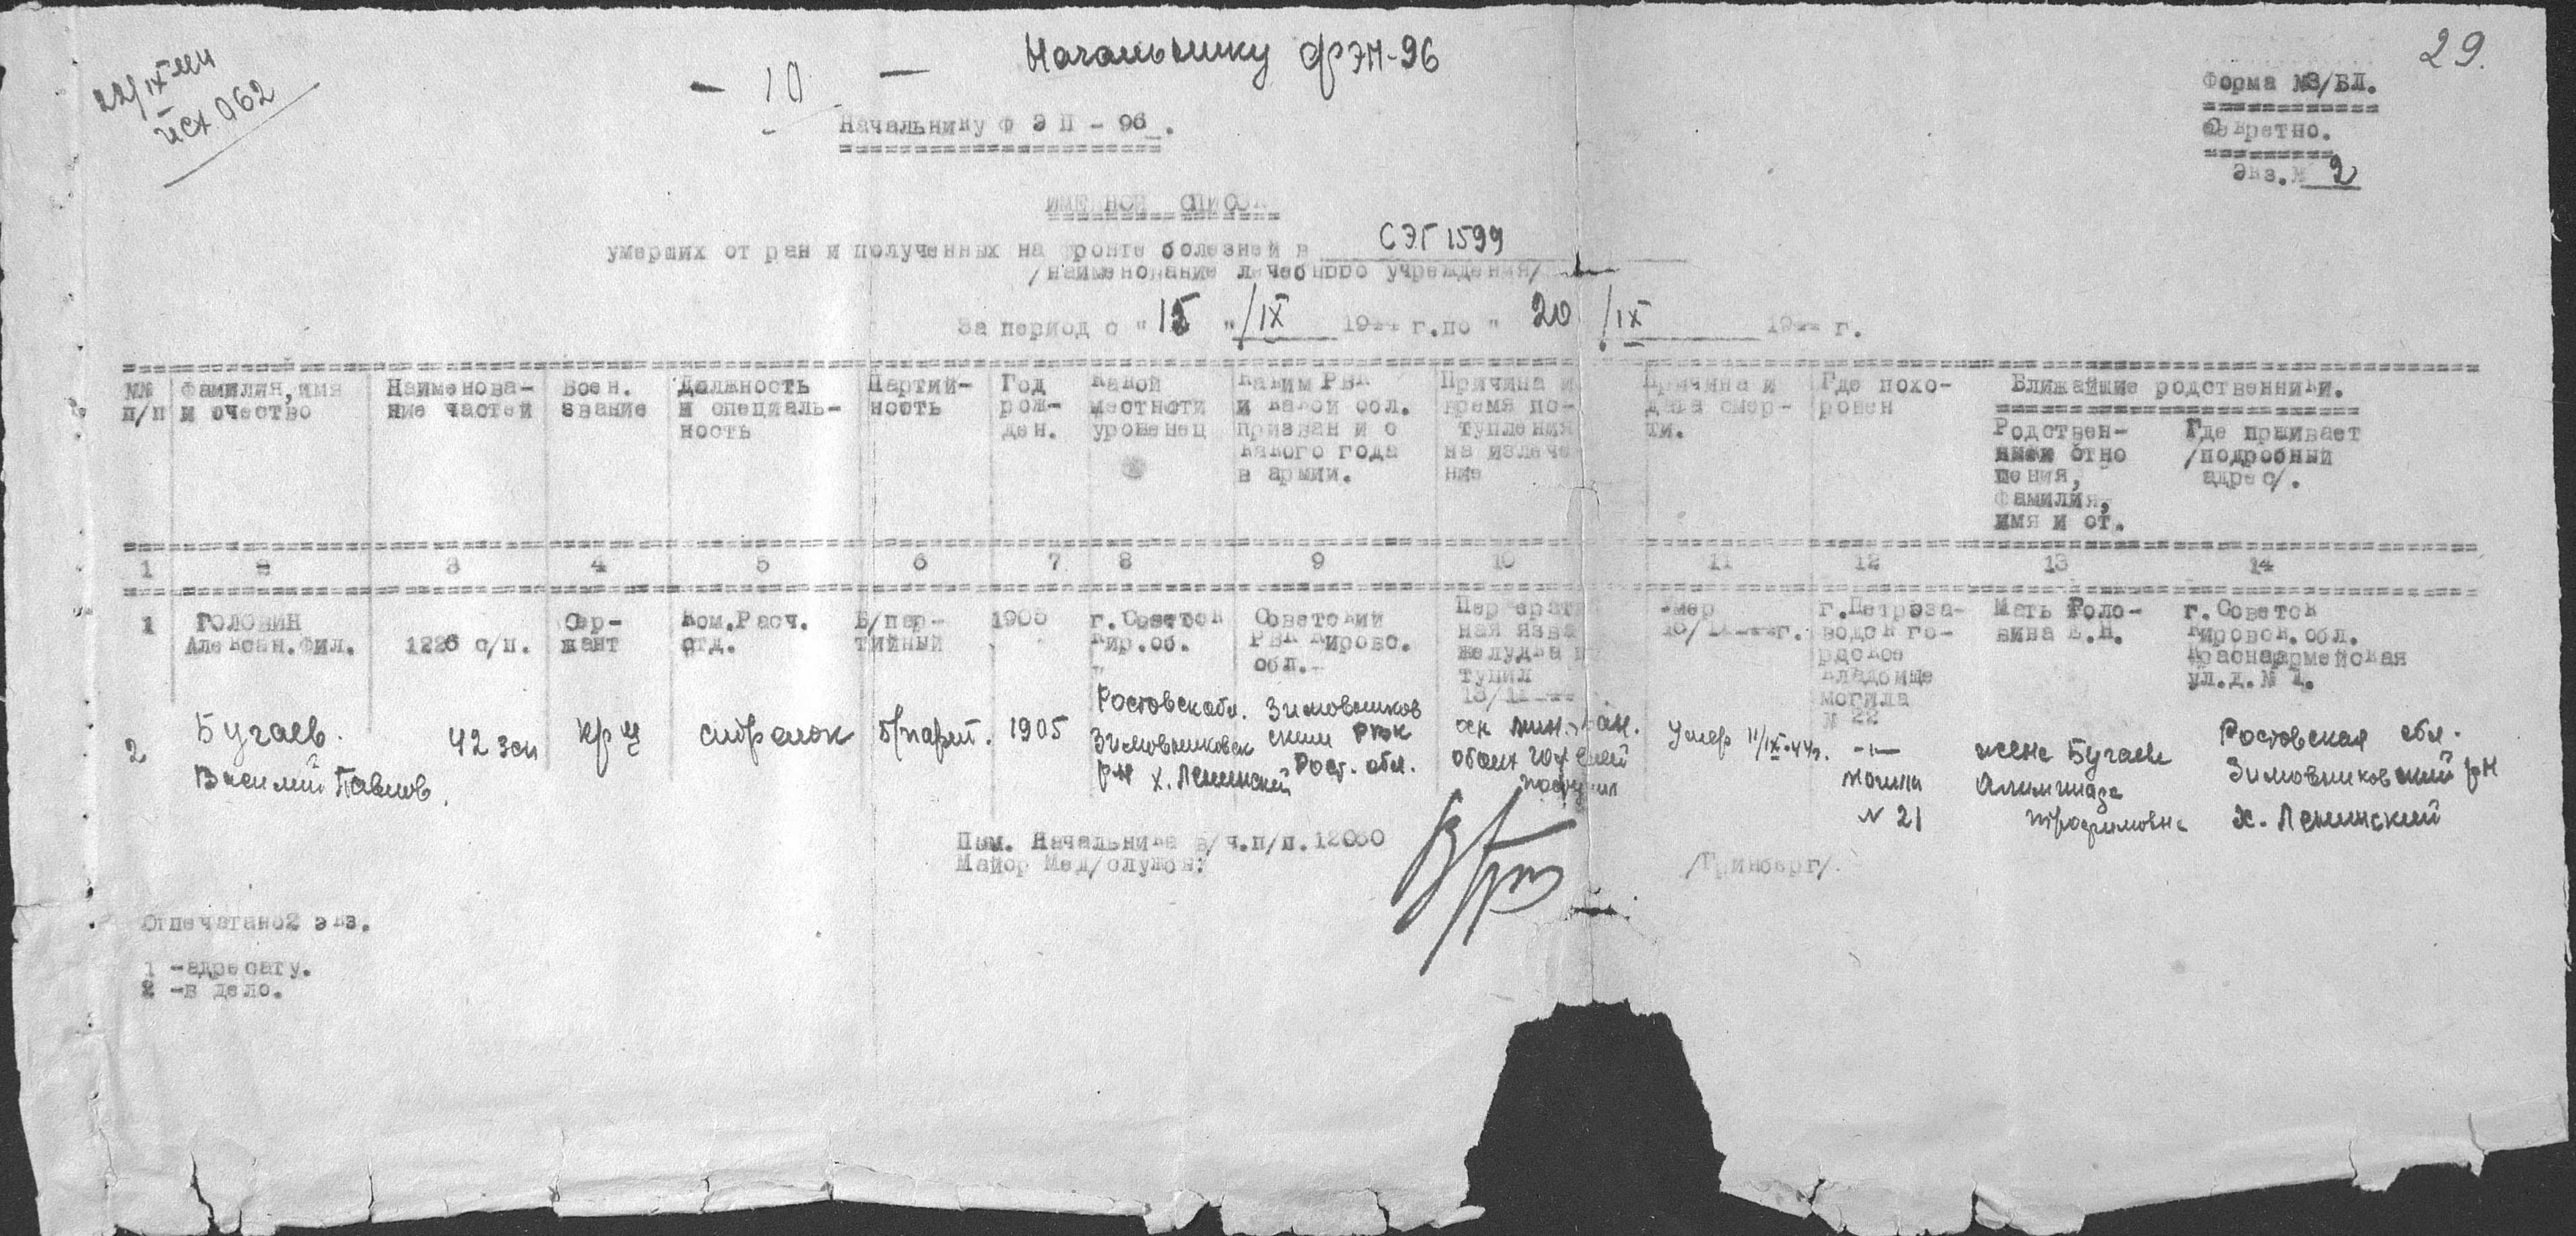 22/IX 44
исх 062
- 10 -
Начальнику ФЭП-96
29.
Форма №3/БЛ.
Секретно.
Экз.№ 2
Начальнику Ф Э П - 96 .
ИМЕННОЙ СПИСОК
умерших от ран и полученных на фронте болезней в СЭГ 1599
/наименование лечебного учреждения/
За период с " 15 " /IX 1944 г. по " 20 /IX 1944 г.
№№ п/п
Фамилия, имя и очество
Наименова-
ние частей
Воен.
звание
Должность
и специаль-
ность
Партий-
ность
Год
рож-
ден.
Какой
местности
уроженец
Каким РВК
и какой обл.
призван и с
какого года
в армии.
Причина и
время по-
тупления
на излече
ние
Причина и
дата смер-
ти.
Где похо-
ронен
Ближайшие родственники.
Родствен-
ные отно
шения,
фамилия,
имя и от.
Где прживает
/подробный
адрес/.
1 2 3 4 5 6 7 8 9 10 11 12 13 14
1
ГОЛОВИН
Алексан.Фил.
1226 с/п.
Сер-
жант
Ком.Расч.
отд.
Б/пар-
тийный
1905
г.Советск
Кир.об.
Советский
РВК Кировс.
обл.-
язва
желудка
тупил
Умер
г.Петроза-
водск го-
рдское
кладбище
могила
№ 22
Мать Голо-
вина Е.Н.
г.Советск
Кировск.обл.
Красноармейская
ул.д.№ 1.
2
Бугаев.
Василий Павлов.
42 зсп
кр-ц
стрелок
б/парт.
1905
Ростовск обл.
Зимовниковск
р-н х. Ленинский
Зимовников
ским РВК
Рост. обл.
обоих
Умер 11/IX-44г.
-"-
могила
№ 21
жена Бугаева
Трофимовна
Ростовская обл.
Зимовниковский р-н
х. Ленинский
Пом. Начальника в/ч.п/п.12060
Майор Мед/службы:
/Гринберг/.
Отпечатано2 экз.
1 -адресату.
2 -в дело.